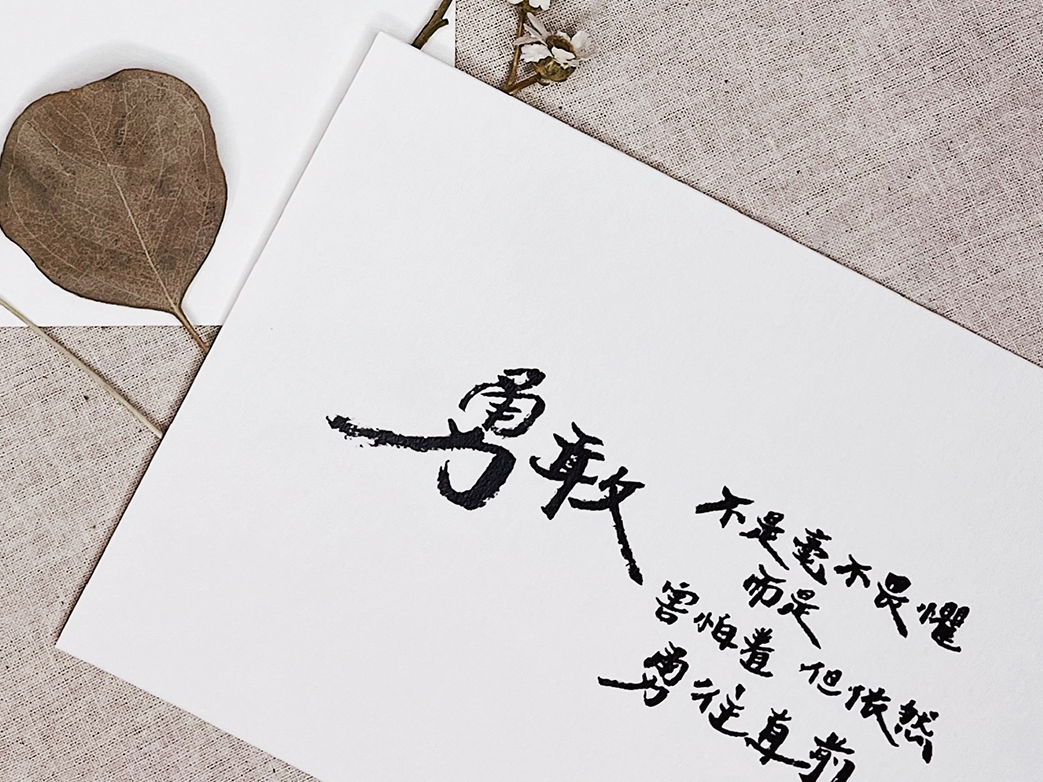 勇敢
不是毫不畏懼
而是
害怕著 但依然
勇往直前